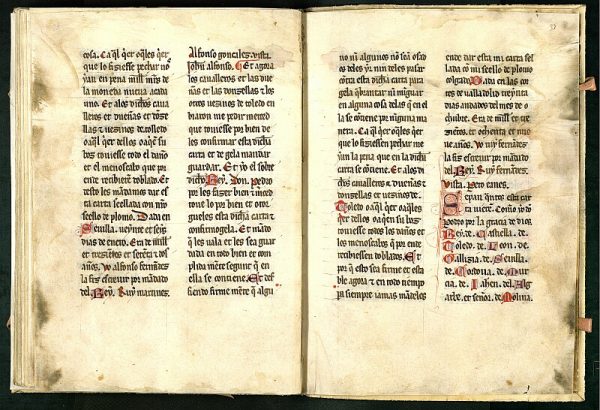 cosa. Ca q̃l q̃er oq̃les q̃er
que lo fiziesse pechar nos
yan en pena mill mrs̃ de
la moneda nueua acada
uno. Et alos dichos caua
lleros et dueñas et donze
llas et uezinos de tolledo
oaq̃l q̃er dellos oaq̃en su
bos touiesse todo el daño
et el menoscabo que por
ende recibieren doblado. Et
desto les mandamos dar es
ta carta seellada con nr̃o
seello de plomo. Dada en
Seuilla. ueynte et seys
dias de enero. Era de mill
et trezientos et setẽta et dos
años. yo alfonso ferrãdez
la fiz escreuir por mãdado
del Rey. Ruy martinez.
Alfonso gonçales. vista.
Johñ alfonso. Et agora
los caualleros et las due
ñas et las donzellas et los
otros uezinos de toledo en
biaron me pedir merced
que touiesse por bien de
les confirmar esta dicha
carta et de gela mandar
guardar. Et yo el sobre
dicho Rey. don. Pedro
por les fazer bien et merced
toue lo por bien et otor
gueles esta dicha carta et
confirmogela. Et mãdo
que les uala et les sea guar
dada en todo bien et con
plida mẽte segunt q̃ en
ella se contiene. Et defi
endo firme mẽre q̃ algu
no nĩ algunos no seã osad
os deles yr nin deles pasar
cõtra esta dicha carta para
gela q̃brantar nĩ mẽguar
en alguna cosa delas q̃ en el
la se cõtiene por nĩguna ma
nera. Ca q̃l q̃er oq̃les q̃er
que lo fiziessen pechar me
yan la pena que en la dicha
carta se cõtiene. Et alos di
chos caualleros et dueñas et
donzellas et uezinos de
Toledo oaq̃l q̃er oaq̃les
q̃er dellos oaq̃en su boz
touiesse todos los daños et
los menoscabos q̃ por ende
recibiessen doblados. Et
por q̃ esto sea firme et esta
ble agora et en todo tiempo
pa siempre iamas mãdeles
ende dar esta mi carta sel
lada cõ mi seello de plomo
colgado. Dada en las cor
tes de ualladolid treynta
dias andados del mes de o
chubre. Era de mill et tre
zientos et ochenta et nue
ue años. yo ruy ferrandez
la fiz escreuir por mãdado
del Rey. Ruy ferrandez.
vista. Pero canes.
Sepan quãtos esta car
ta uierẽ. Como yo dõ
pedro por la gracia de dios
Rey. de. Castiella. de
Toledo. de. Leon. de
Gallizia. de. Seuilla.
de. Cordoua. de. mur
cia. de. Jahen. del. Alg
arbe. et señor. de. Molina.